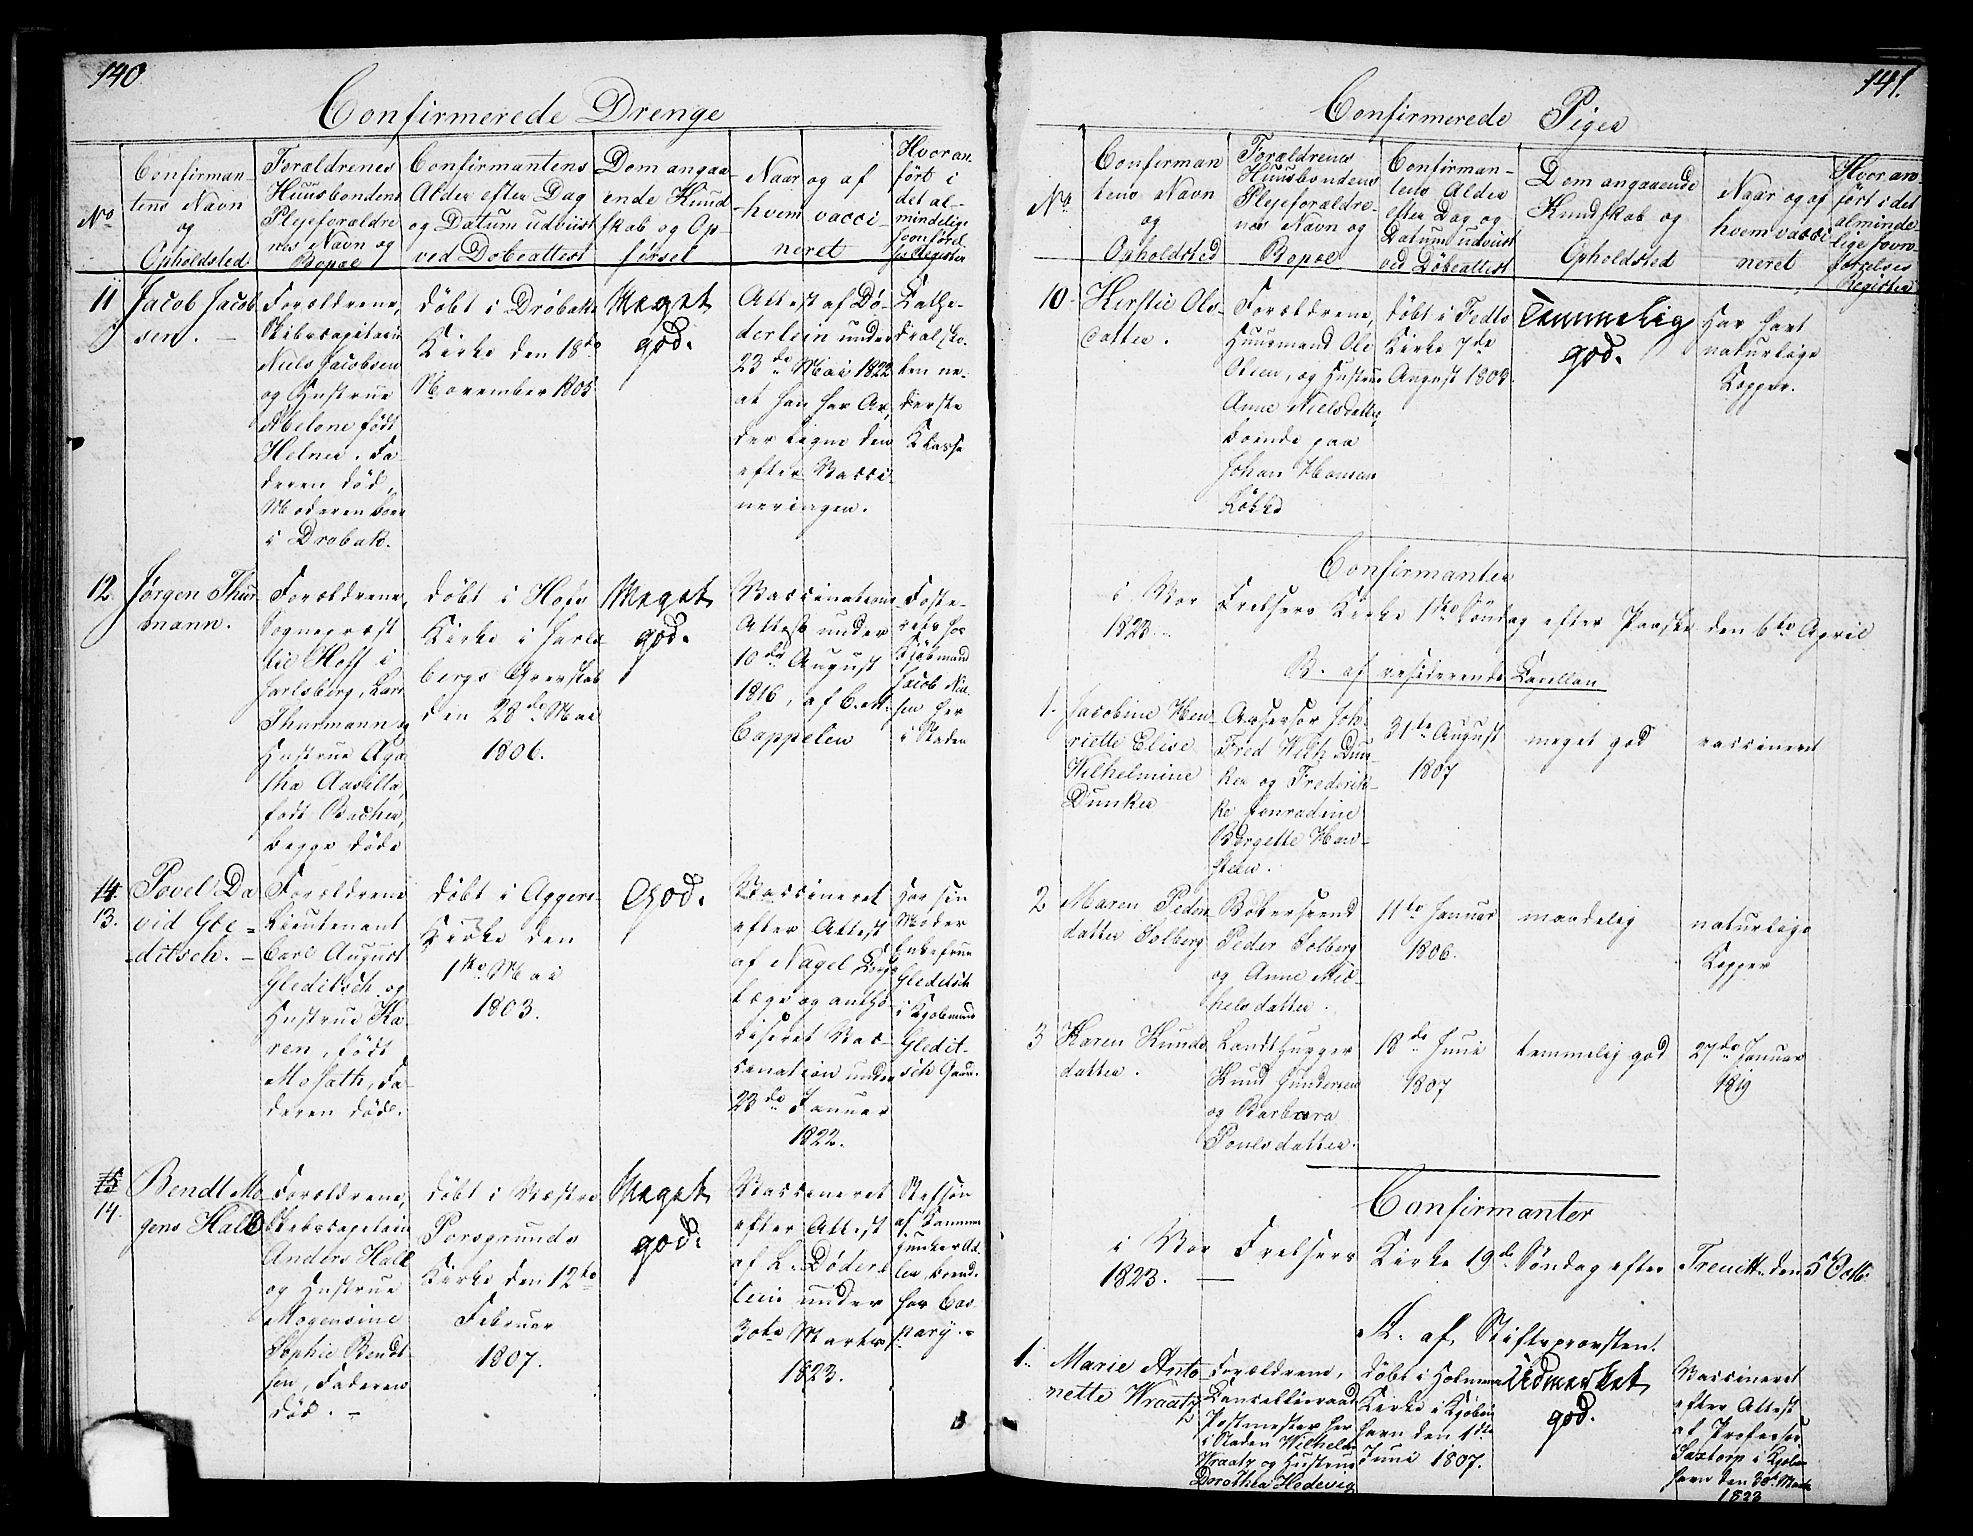 140.
Confirmerede Drenge
No
Confirman-
tens Navn
og
Opholdsted
Foraldrenes
Huusbondens
Plejeforaldre
nes Navn og
Bopæl
Confirmantens
Alder efter Dag
og Datum udviist
ved Døbeattest
Dom angaa-
ende Kund
skab og Op-
førsel
Naar og af
hvem vacci
neret
Hvor an-
ført i
det al-
mindelige
Register
11
Jacob Jacob
sen. -
Forældrene,
Skibscapitain
Niels Jacobsen
og Hustrue
Abelone født
Helner. Fa-
deren død,
Moderen boer
i Drobak.
døbt i Drøbaks
Kirke den 18de
November 1805
Meget
god.
Attest af Dø-
derlein under
23de Mai 1822
at han har Ar,
der ligne den
efter Vacci-
neringen.
Cathe-
dralsko-
len ne-
derste
Klasse
12.
Jørgen Thur-
mann.
Forældrene,
Sognepræst
til Hoff i
Jarlsberg, Lars
Thurmann og
Hustrue Aga-
tha
født Bacher,
begge døde
døbt i Hofs
Kirke i Jarls
bergs Grevskab
den 28de Mai
1806.
Meget
god.
Vaccinations
Attest under
10de August
1816, af
Cappelen
Foste-
rets hos
Kjøbmand
Jacob Niel-
sen her
i Staden
14
13.
Povel Da
vid Gle-
ditsch. -
Forældrene
Lieutenant
Carl August
Gleditsch og
Hustrue Ka-
ren, født
Mosath, Fa-
deren død.
døbt i Aggers
Kirke den
1ste Mai
1803.
God.
Vaccineret
efter Attest
af Nagel
Læge og autho-
riseret Vac-
cination under
23de Januar
1822.
Hos sin
Moder
Enkefrue
Gleditsch
i Kjøbmand
Gledit-
sch Gaard.
15
14.
Bendt Mo-
gens Hall
Forældrene,
Skibscapitain
Anders Hall
og Hustrue
Mogensine
Sophie Bendt
sen, Faderen
død. -
døbt i Vestre
Porsgrunds
Kirke den 12te
Februar
1807.
Meget
god.
Vaccineret
efter Attest
af L. Døder
lein under
30te Marts
1823.
Stefsøn
af Kammer
junker Ad-
ler,
hos Cas-
pary. -
141.
Confirmerede Piger
No
Confirman
tens Navn
og
Opholdsted
Forældrenes
Huusbondens
Plejeforaldre-
nes Navn og
Bopæl
Confirman-
tens Alder
efter Dag og
Datum udviist
ved Døbeattest
Dom angaaende
Kundskab og
Opholdsted
Naar og af
hvem vacci
neret
Hvor an-
ført i det
alminde-
lige Jevn-
førelses
Register
10.
Kirstie Ols-
datter.
Forældrene,
Huusmand Ole
Olsen, og Hustrue
Anne Nielsdatter,
boende paa
Johan Hansens
Løkke
døbt i
Kirke 7de
August 1803.
Temmelig
god.
Har havt
naturlige
Kopper.
Confirmanter
i Vor Frelsers Kirke 1ste Søndag efter Paaske den 6te April
1823.
B. af residerende Capellan
1.
Jacobine Hen-
riette Elise
Wilhelmine
Dunker
Assessor Joh.
Fred Wilh Dun-
ker og Frederik-
ke Conradine
Birgette Han-
steen.
31te August
1807
meget god
vaccineret
2
Maren Peders
datter Solberg
Peder Solberg
og Anne Mic-
helsdatter.
11te Januar
1806.
maadelig
naturlige
Kopper
3
Karen Knuds
datter.
Knud Gundersen
og Barbrara
Poulsdatter.
18de Juni
1807
temmelig god
27de Januar
1819
Confirmanter
i Vor Frelsers Kirke 19de Søndag efter Trenitt. den 5 Octb.
1823.
A. af Stiftsprovsten.
1.
Marie Anto-
nette Wraatz
Forældrene,
Cancellieraad
Postmester her
i Staden Wilhelm
Wraatz og Hustrue
Dorothea Hedevig
døbt i Holmens
Kirke i Kjøben
havn den 1ste
Juni 1807.
Udmærket
god.
Vaccineret
efter Attest
af Professor
Saxtorp i Kjøben
havn den 30te Marts
1823